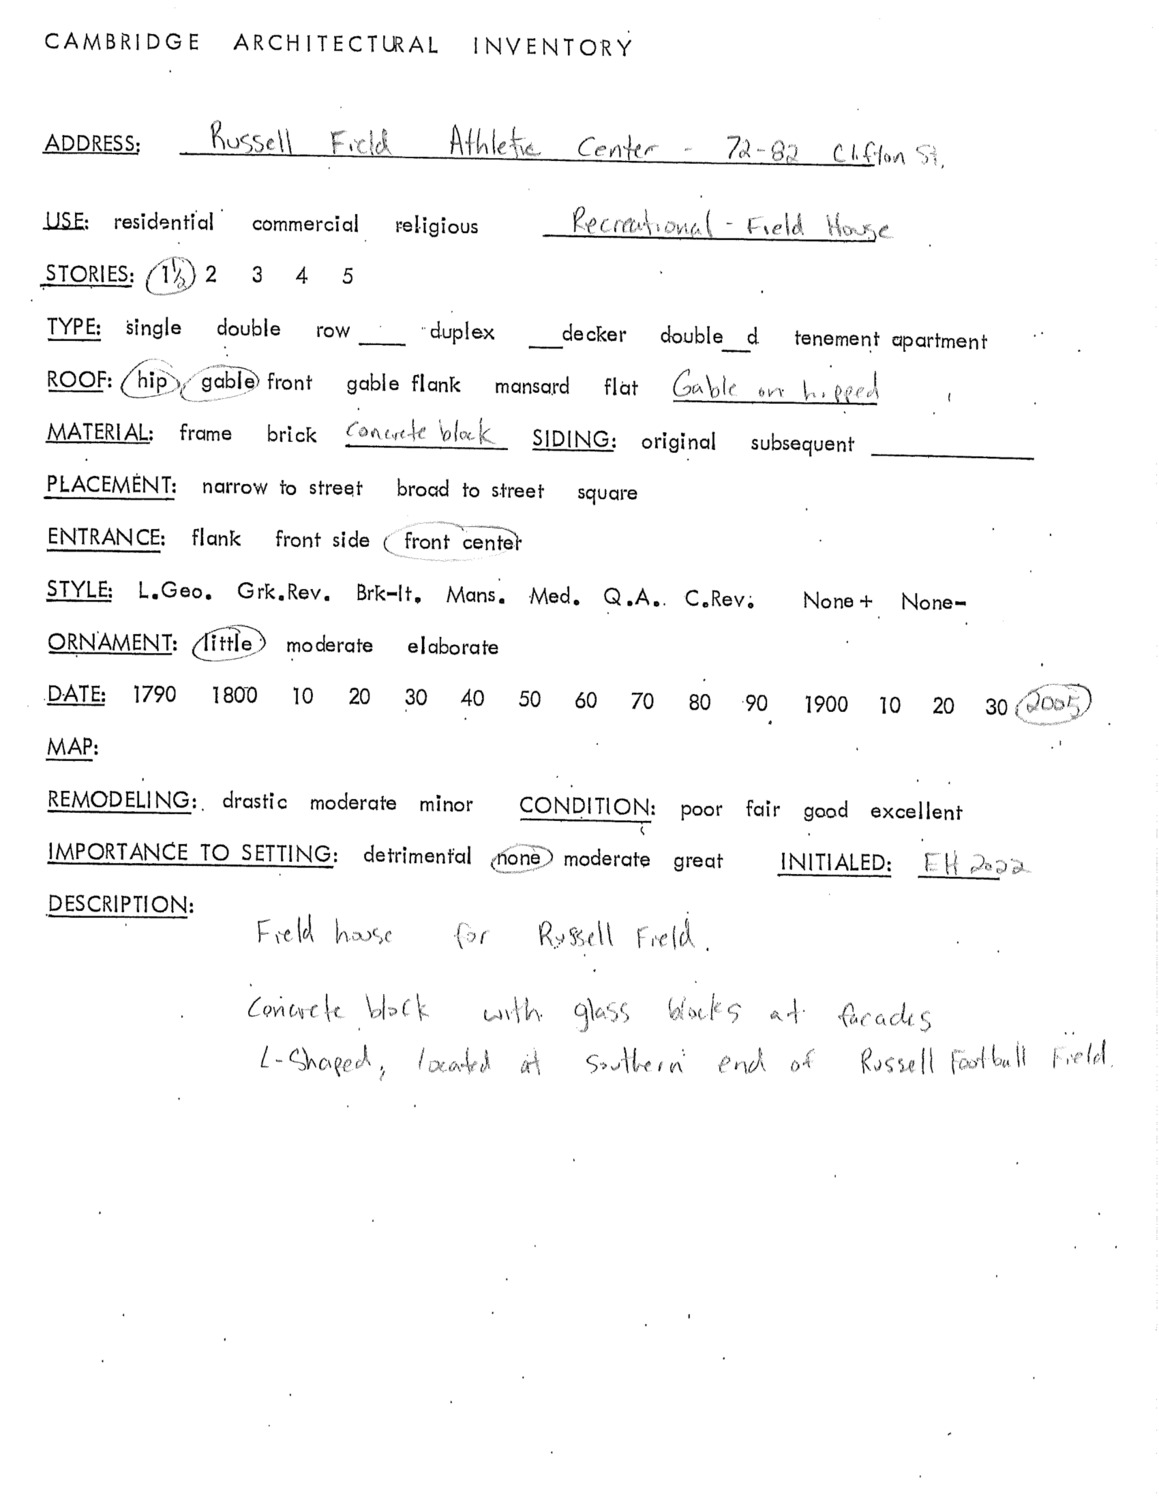 CAMBRIDGE ARCHITECTURAL INVENTORY
ADDRESS: Russell Field Athletic Center - 72-82 Clifton St.
USE: residential commercial religious Recreational - Field House
STORIES: 1½ 2 3 4 5
TYPE: single double row ___ duplex ___decker double__d tenement apartment
ROOF: hip, gable front gable flank mansard flat Gable on hipped
MATERIAL: frame brick Concrete block SIDING: original subsequent ___
PLACEMENT: narrow to street broad to street square
ENTRANCE: flank front side front center
STYLE: L.Geo. Grk.Rev. Brk-It. Mans. Med. Q.A. C.Rev. None+ None-
ORNAMENT: little moderate elaborate
DATE: 1790 1800 10 20 30 40 50 60 70 80 90 1900 10 20 30 2005
MAP:
REMODELING: drastic moderate minor CONDITION: poor fair good excellent
IMPORTANCE TO SETTING: detrimental none moderate great INITIALED: EH 2022
DESCRIPTION:
Field house for Russell Field.
Concrete block with glass blocks at facades
L-Shaped, located at southern end of Russell Football Field.